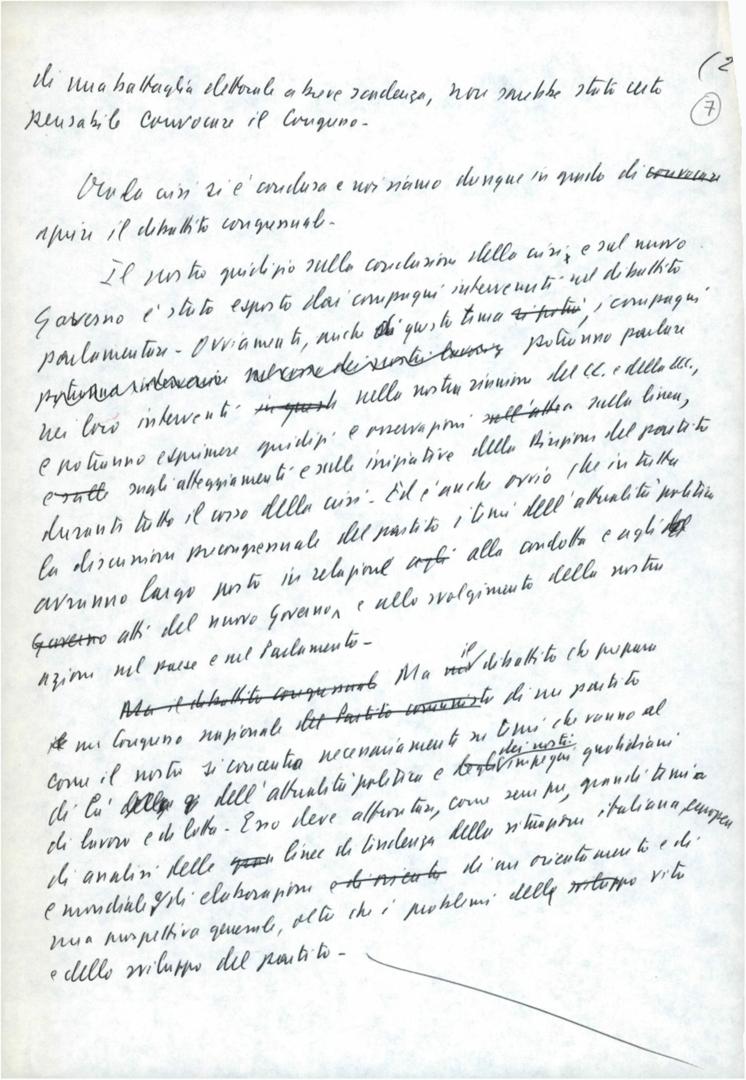 (2
7
di una battaglia elettorale a breve scadenza, non sarebbe stato certo
pensabile convocare il Congresso -
Ora la crisi si è conclusa e noi siamo dunque in grado di convocare
aprire il dibattito congressuale -
Il nostro giudizio sulla conclusione della crisi, e sul nuovo
Governo è stato esposto dai compagni intervenuti nel dibattito
parlamentare - Ovviamente, anche di questo tema si potrà, i compagni
potranno intervenire nel corso dei nostri lavori potranno parlare
nei loro interventi in questa nella nostra riunione del CC. e della CCC,
e potranno esprimere giudizi e osservazioni sull'atteg sulla linea,
e sulle sugli atteggiamenti e sulle iniziative della Direzione del partito
durante tutto il corso della crisi - Ed è anche ovvio che in tutta
la discussione precongressuale del partito i temi dell'attualità politica
avranno largo posto in relazione agli alla condotta e agli
Governo atti del nuovo Governo, e allo svolgimento della nostra
azione nel paese e nel Parlamento -
Ma il dibattito congressuale Ma il dibattito che prepara
un Congresso nazionale del Partito comunista di un partito
come il nostro si concentra necessariamente su temi che vanno al
di là dell'attualità politica e degli dei nostri impegni quotidiani
di lavoro e di lotta - Esso deve affrontare, come sempre, grandi temi
di analisi delle gran linee di tendenza della situazione italiana, europea
e mondiale, di elaborazione e di orienta di un orientamento e di
una prospettiva generale, oltre che i problemi della sviluppo vita
e dello sviluppo del partito -